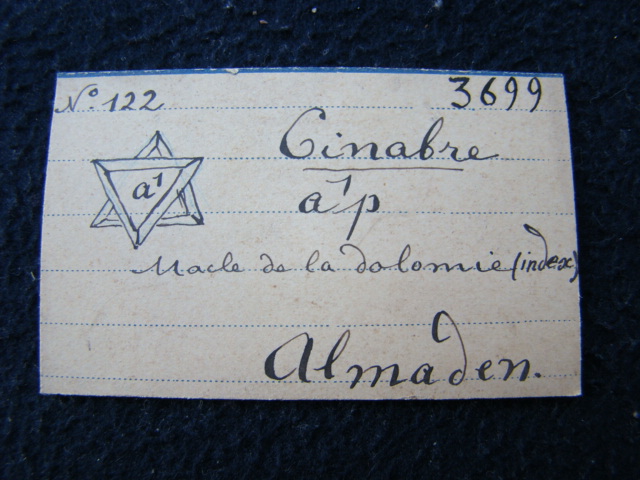 N° 122
3699
Cinabre
a¹
a¹p
Macle de la dolomie (index)
Almaden.